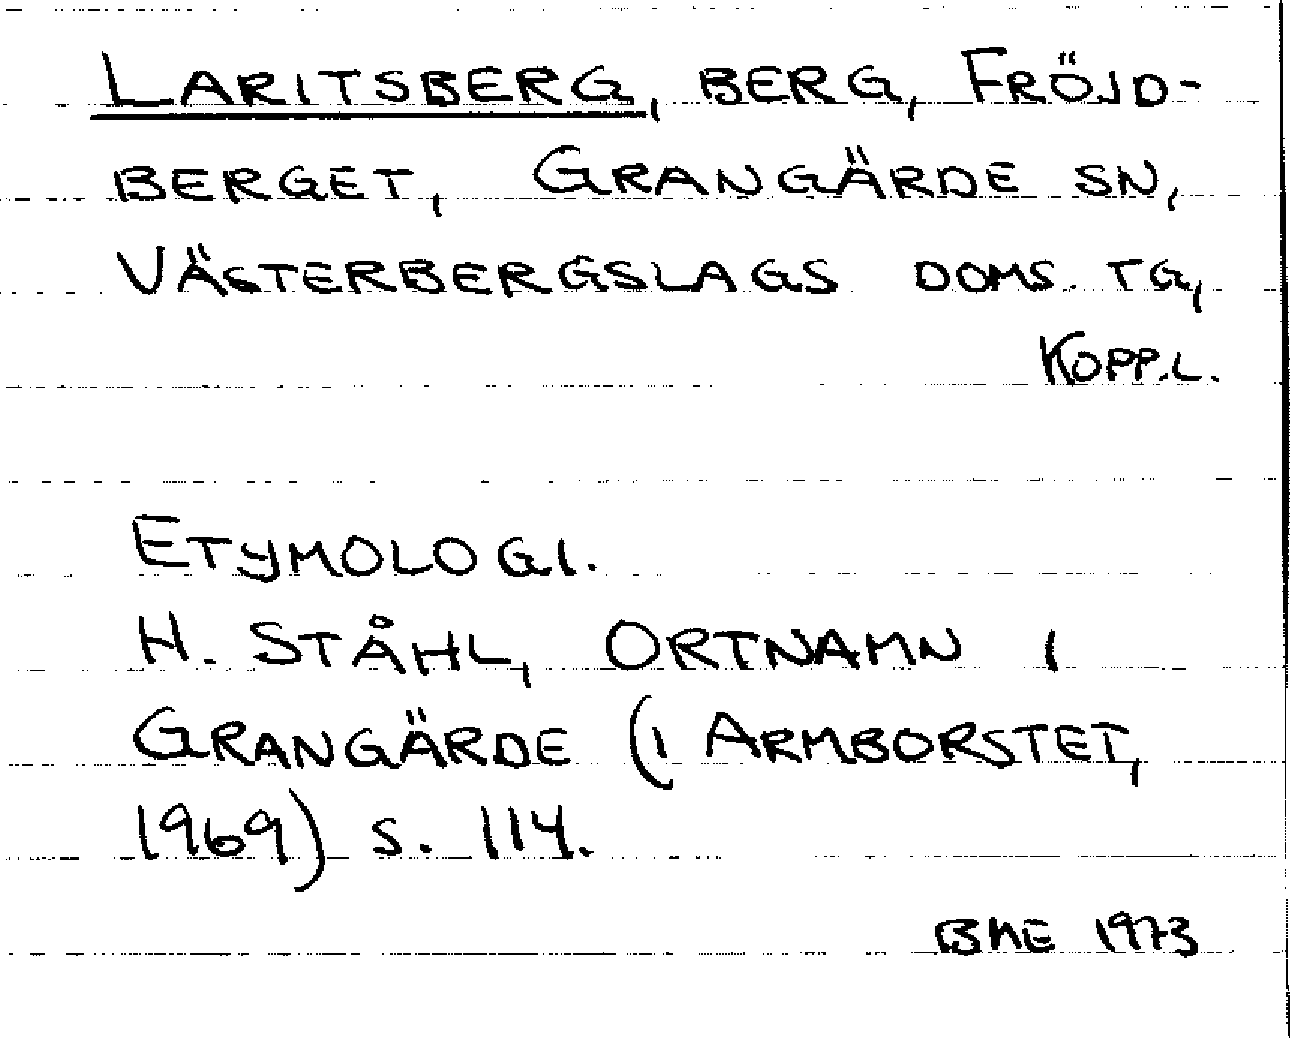 LARITSBERG, BERG, FRÖJD-
BERGET, GRANGÄRDE SN,
VÄSTERBERGSLAGS DOMS. TG,
KOPP.L.
ETYMOLOGI.
H. STÅHL, ORTNAMN I
GRANGÄRDE (I ARMBORSTET,
1969) S. 114.
BME 1973